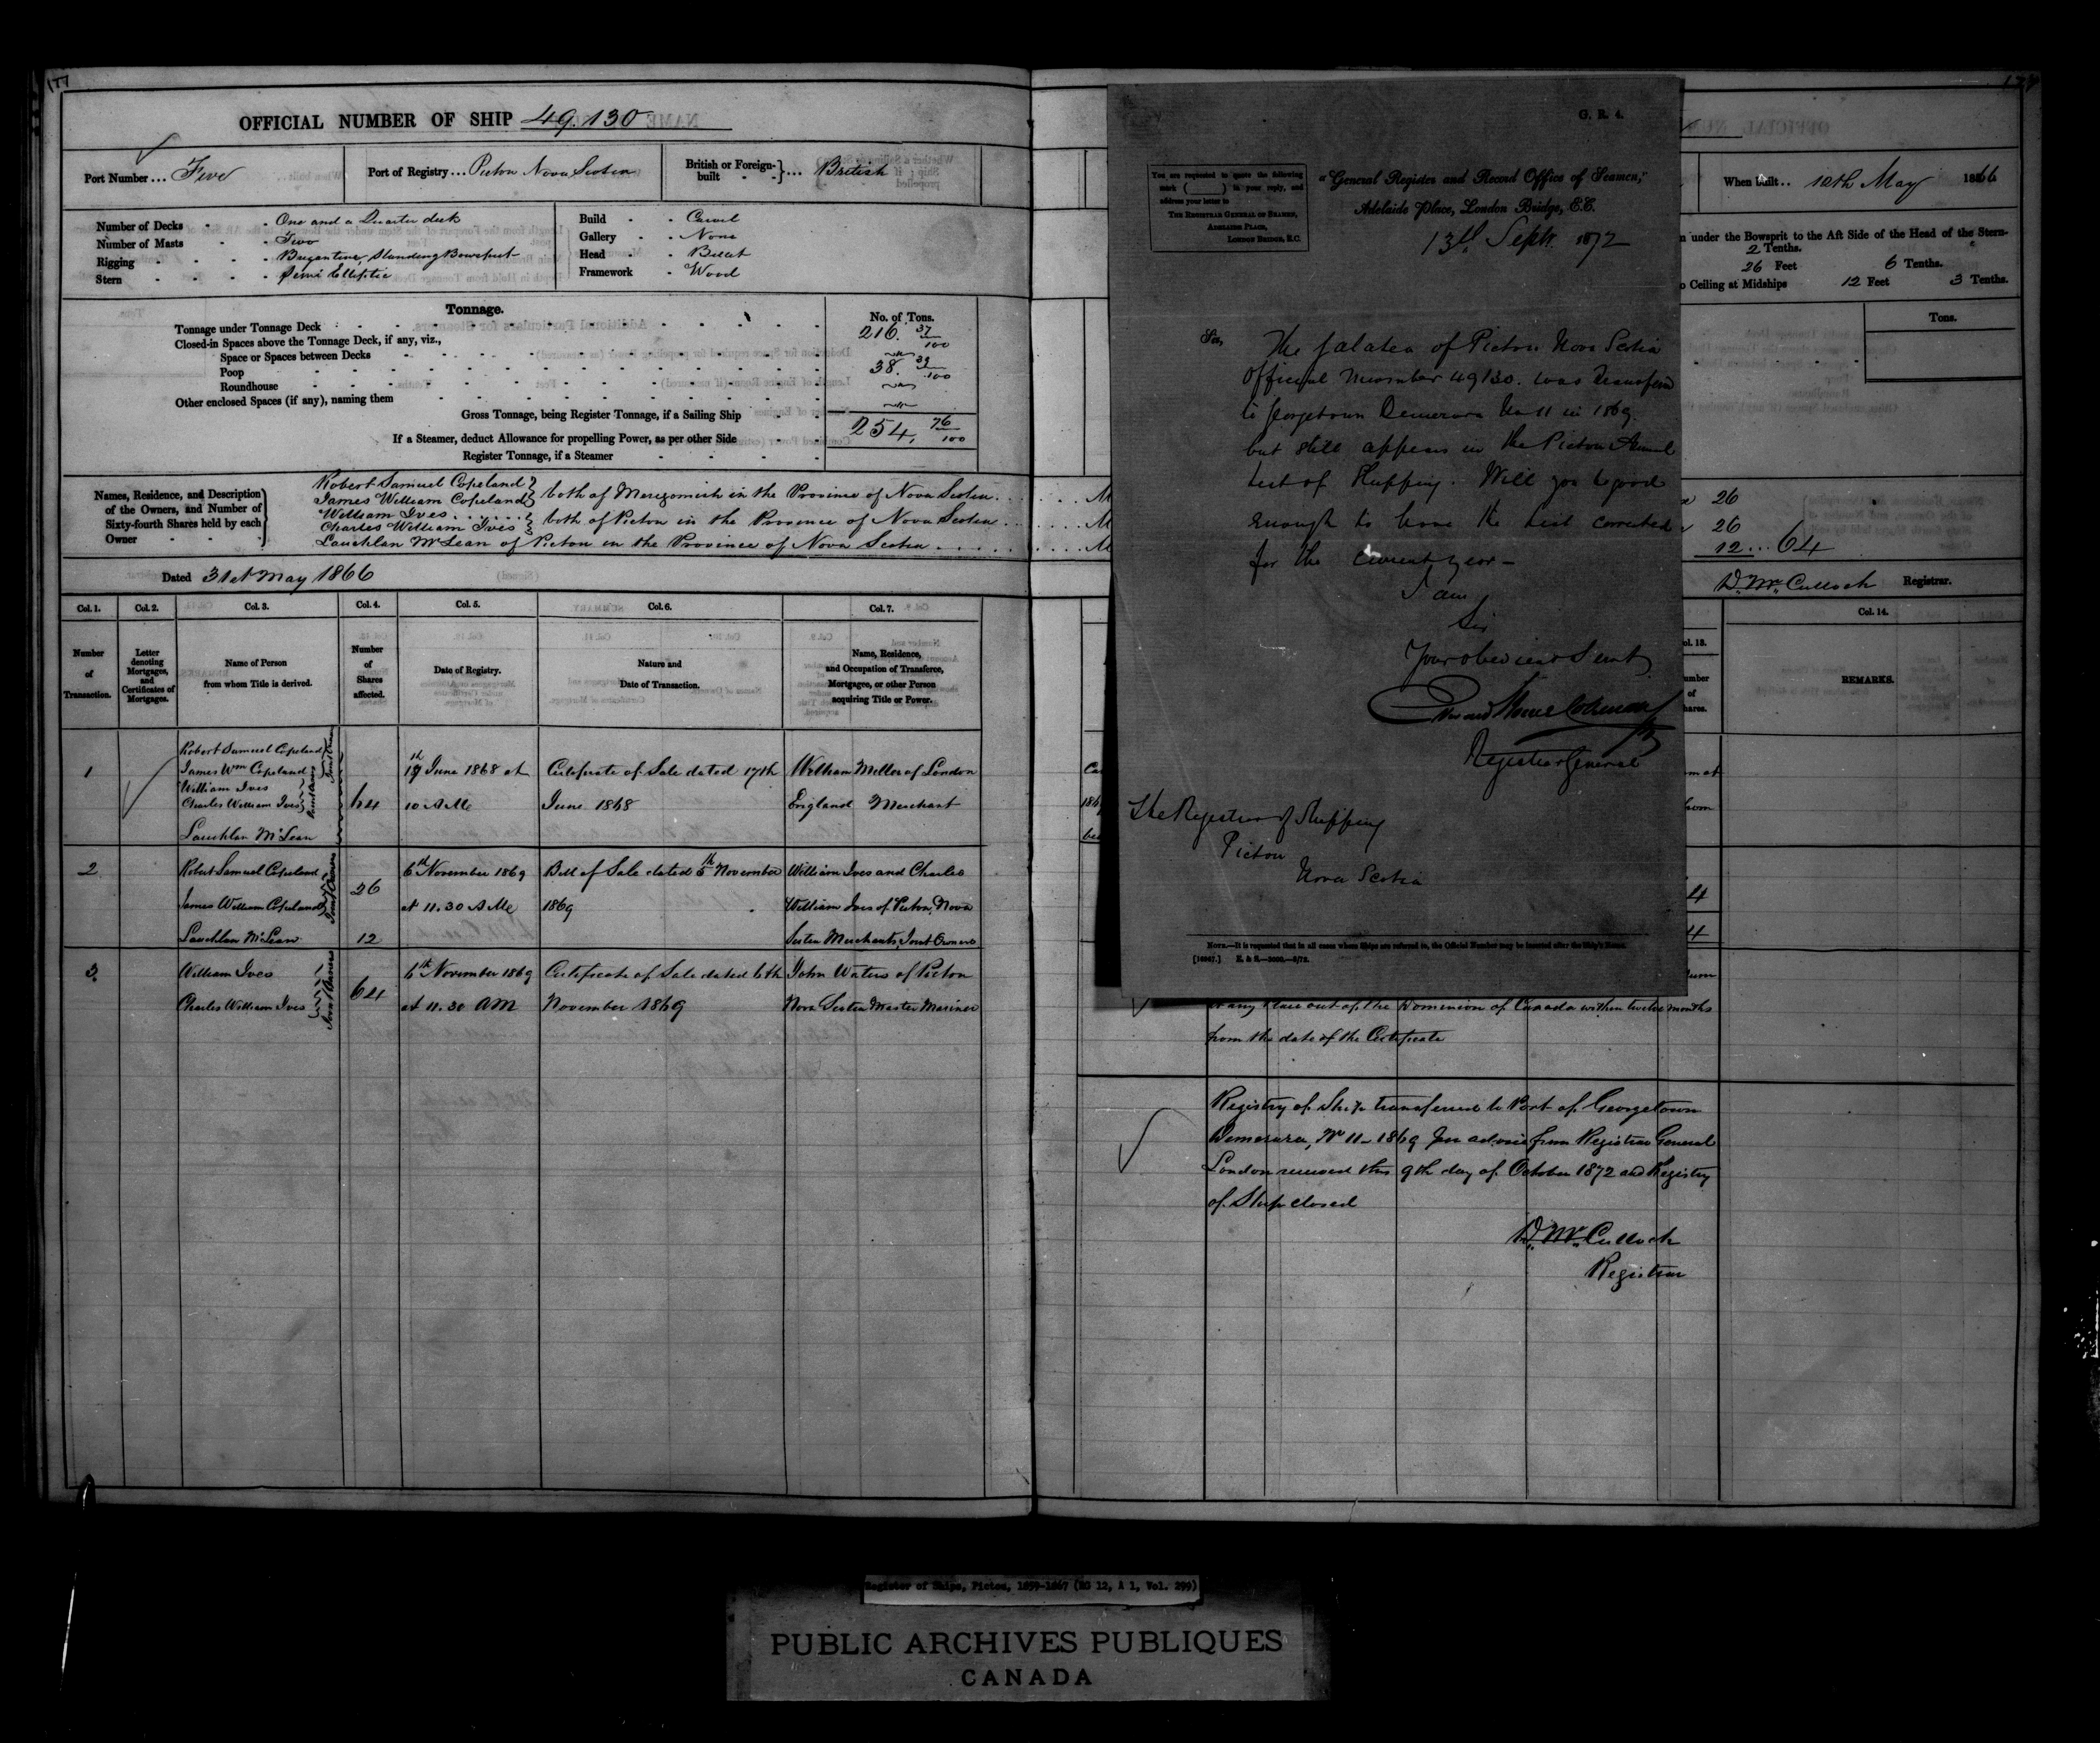 177
OFFICIAL NUMBER OF SHIP 49.130
Port Number ... Five
Port of Registry ... Pictou Nova Scotia
British or Foreign-built ... British
Number of Decks - - One and a Quarter deck
Number of Masts - - Two
Rigging - - - - Brigantine, Standing Bowsprit
Stern - - - - Semi Elliptic
Build - - Carvel
Gallery - - None
Head - - Billet
Framework - Wood
Tonnage.
No. of Tons.
Tonnage under Tonnage Deck 216. 37/100
Closed-in Spaces above the Tonnage Deck, if any, viz.,
Space or Spaces between Decks
Poop 38. 39/100
Roundhouse
Other enclosed Spaces (if any), naming them
Gross Tonnage, being Register Tonnage, if a Sailing Ship 254, 76/100
If a Steamer, deduct Allowance for propelling Power, as per other Side
Register Tonnage, if a Steamer
Names, Residence, and Description of the Owners, and Number of Sixty-fourth Shares held by each Owner
Robert Samuel Copeland
James William Copeland } both of Merigomish in the Province of Nova Scotia
William Ives
Charles William Ives } both of Pictou in the Province of Nova Scotia
Lauchlan McLean of Pictou in the Province of Nova Scotia
Dated 31st May 1866
Col. 1. Col. 2. Col. 3. Col. 4. Col. 5. Col. 6. Col. 7.
Number of Transaction.
Letter denoting Mortgages, and Certificates of Mortgages.
Name of Person from whom Title is derived.
Number of Shares affected.
Date of Registry.
Nature and Date of Transaction.
Name, Residence, and Occupation of Transferee, Mortgagee, or other Person acquiring Title or Power.
1
Robert Samuel Copeland
James Wm Copeland
William Ives
Charles William Ives
Lauchlan McLean
Joint Owners
64
17th June 1868 at
10 A Me
Certificate of Sale dated 17th
June 1868
William Miller of London
England Merchant
2
Robert Samuel Copeland
James William Copeland
Lauchlan McLean
Joint Owners
26
12
6th November 1869
at 11.30 A Me
Bill of Sale dated 5th November
1869
William Ives and Charles
William Ives of Pictou, Nova
Scotia Merchants, Joint Owners
3
William Ives
Charles William Ives
Joint Owners
64
6th November 1869
at 11.30 AM
Certificate of Sale dated 6th
November 1869
John Waters of Pictou
Nova Scotia Master Mariner
G. R. 4.
You are requested to quote the following mark ( ) in your reply, and address your letter to
THE REGISTRAR GENERAL OF SEAMEN,
ADELAIDE PLACE,
LONDON BRIDGE, E.C.
"General Register and Record Office of Seamen,"
Adelaide Place, London Bridge, E.C.
13th Septr. 1872
Sir,
The Galatea of Pictou Nova Scotia
Official Number 49130. was transferd
to Georgetown Demerara No 11 in 1869.
but still appears in the Pictou Annual
List of Shipping. Will you be good
enough to have the List corrected
for the current year –
I am
Sir
Your obedient Servt
Registrar General
The Registrar of Shipping
Pictou
Nova Scotia
NOTE.—It is requested that in all cases where Ships are referred to, the Official Number may be inserted after the Ship's Name.
When built .. 12th May 1866
under the Bowsprit to the Aft Side of the Head of the Stern-
2 Tenths.
26 Feet 6 Tenths.
Ceiling at Midships 12 Feet 3 Tenths.
Tons.
26
26
12 ... 64
D. McCulloch Registrar.
Col. 14.
REMARKS.
any place out of the Dominion of Canada within twelve months
from the date of the Certificate
Registry of Ship transferred to Port of Georgetown
Demerara, No 11 – 1869 Per advice from Registrar General
London received this 9th day of October 1872 and Registry
of Ship closed
D. McCulloch
Registrar
Register of Ships, Pictou, 1859-1867 (RG 12, A 1, Vol. 299)
PUBLIC ARCHIVES PUBLIQUES
CANADA